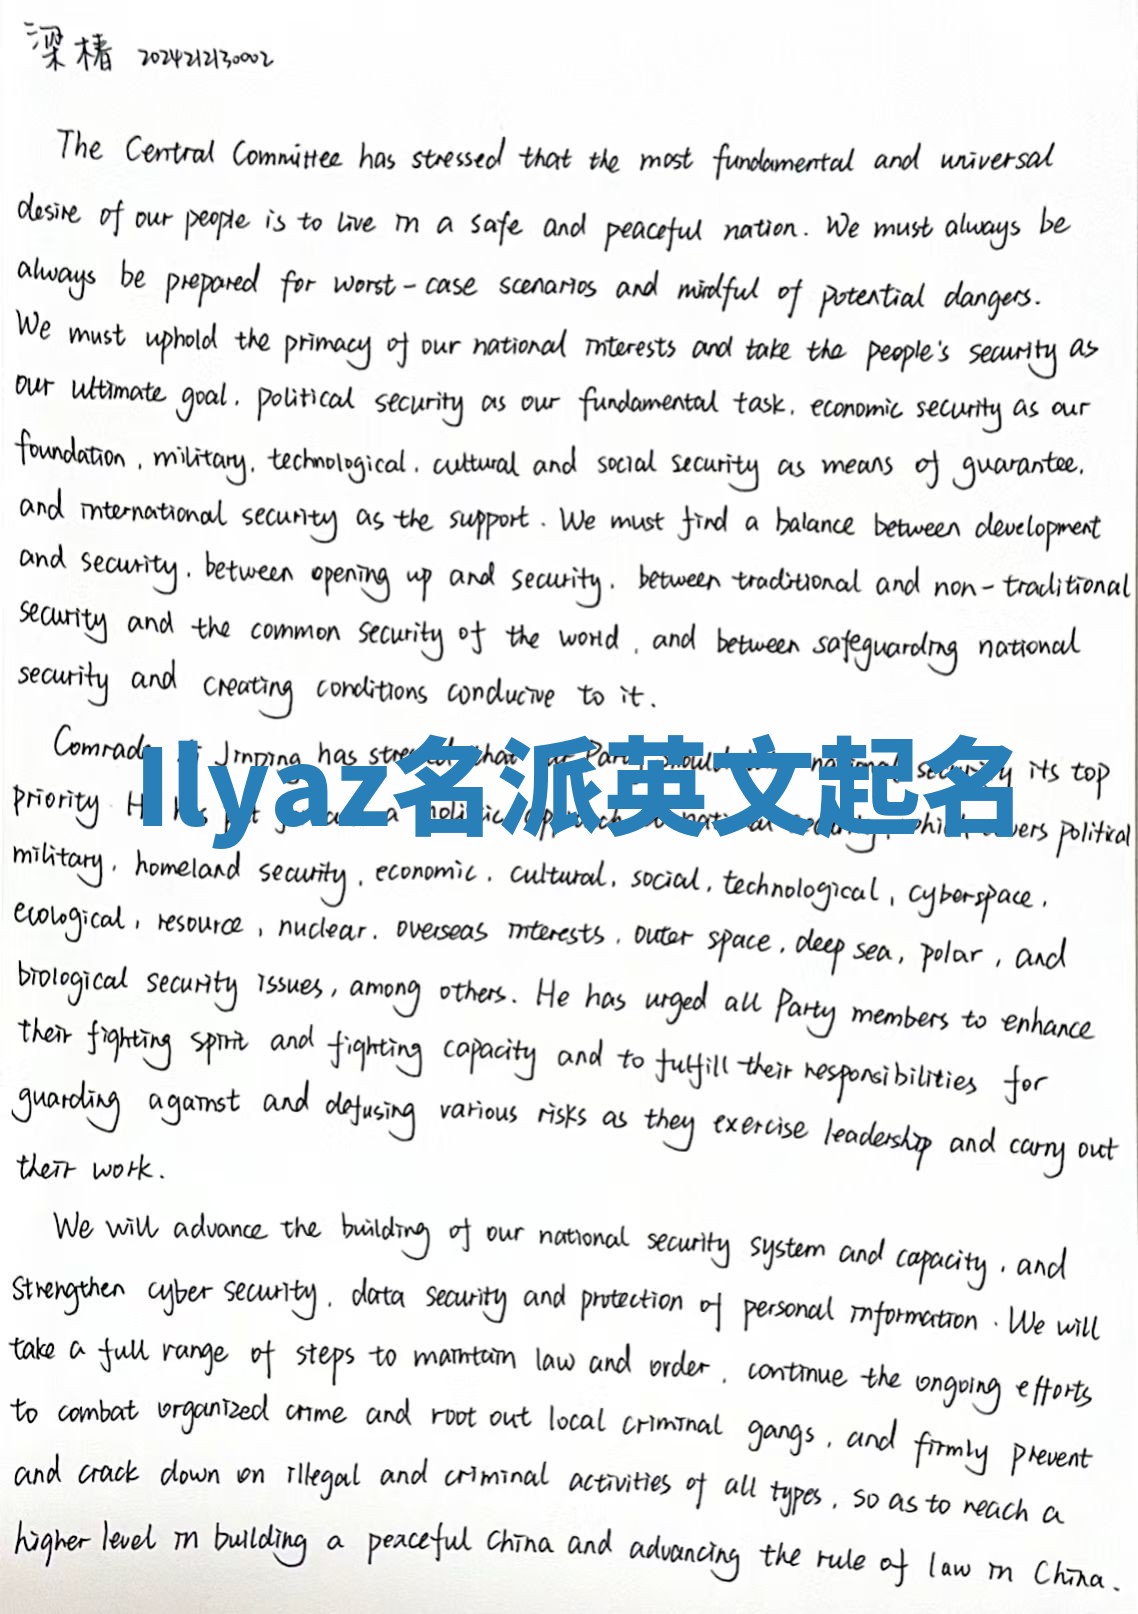 梁椿 2024212130002
The Central Committee has stressed that the most fundamental and universal
desire of our people is to live in a safe and peaceful nation. We must always be
always be prepared for worst-case scenarios and mindful of potential dangers.
We must uphold the primacy of our national interests and take the people's security as
our ultimate goal, political security as our fundamental task, economic security as our
foundation, military, technological, cultural and social security as means of guarantee,
and international security as the support. We must find a balance between development
and security, between opening up and security, between traditional and non-traditional
security and the common security of the world, and between safeguarding national
security and creating conditions conducive to it.
Comrade Jinping has stressed that Party should national security its top
Ilyaz名派英文起名
priority. He has put a holistic approach national security, which covers political
military, homeland security, economic, cultural, social, technological, cyberspace,
ecological, resource, nuclear, overseas interests, outer space, deep sea, polar, and
biological security issues, among others. He has urged all Party members to enhance
their fighting spirit and fighting capacity and to fulfill their responsibilities for
guarding against and defusing various risks as they exercise leadership and carry out
their work.
We will advance the building of our national security system and capacity, and
strengthen cyber security, data security and protection of personal information. We will
take a full range of steps to maintain law and order, continue the ongoing efforts
to combat organized crime and root out local criminal gangs, and firmly prevent
and crack down on illegal and criminal activities of all types, so as to reach a
higher level in building a peaceful China and advancing the rule of law in China.